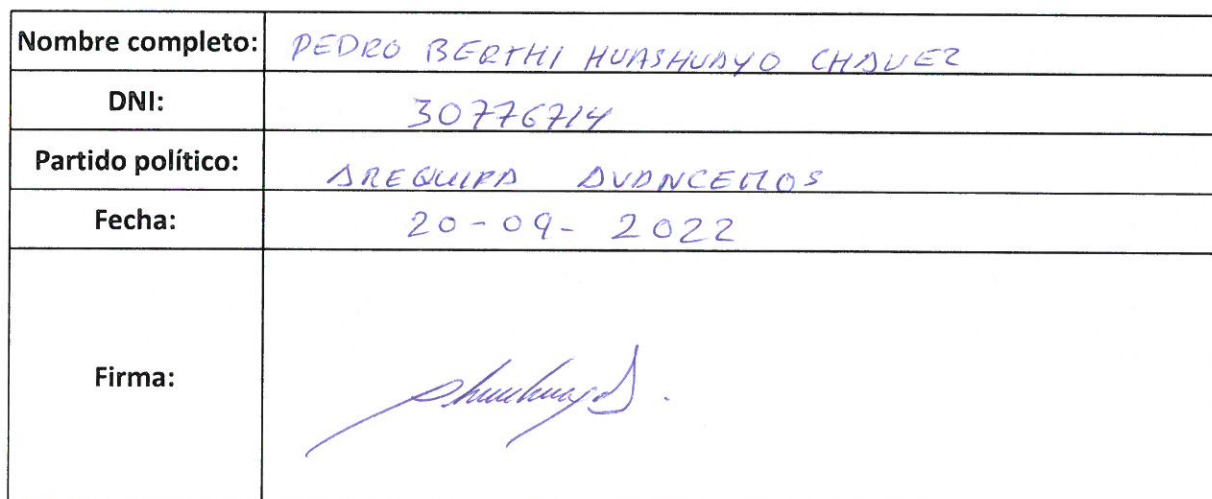 Nombre completo: PEDRO BERTHI HUASHUAYO CHAVEZ
DNI: 30776714
Partido político: AREQUIPA AVANCEMOS
Fecha: 20-09-2022
Firma: